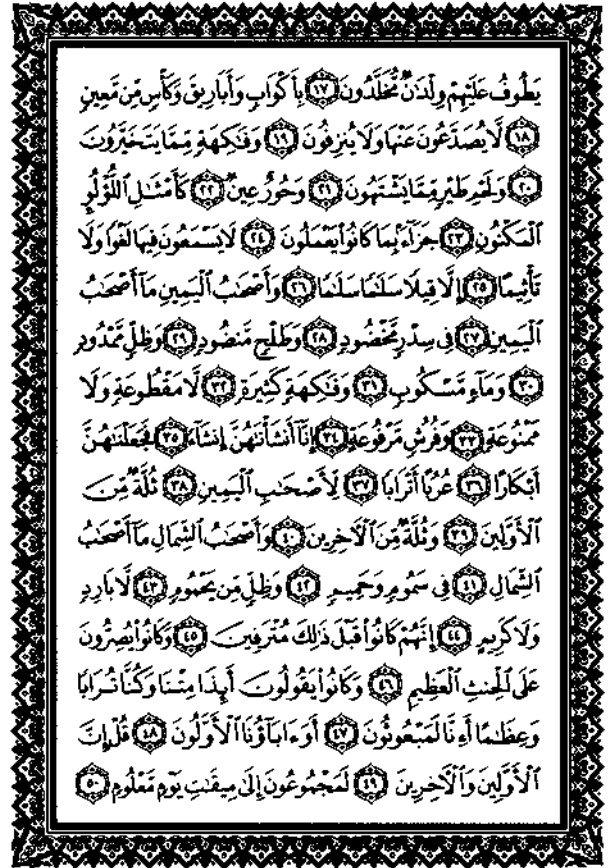 يَطُوفُ عَلَيْهِمْ وِلْدَٰنٌ مُّخَلَّدُونَ ۝١٧ بِأَكْوَابٍ وَأَبَارِيقَ وَكَأْسٍ مِّن مَّعِينٍ
۝١٨ لَّا يُصَدَّعُونَ عَنْهَا وَلَا يُنزِفُونَ ۝١٩ وَفَٰكِهَةٍ مِّمَّا يَتَخَيَّرُونَ
۝٢٠ وَلَحْمِ طَيْرٍ مِّمَّا يَشْتَهُونَ ۝٢١ وَحُورٌ عِينٌ ۝٢٢ كَأَمْثَٰلِ ٱللُّؤْلُؤِ
ٱلْمَكْنُونِ ۝٢٣ جَزَآءًۢ بِمَا كَانُوا۟ يَعْمَلُونَ ۝٢٤ لَا يَسْمَعُونَ فِيهَا لَغْوًا وَلَا
تَأْثِيمًا ۝٢٥ إِلَّا قِيلًا سَلَٰمًا سَلَٰمًا ۝٢٦ وَأَصْحَٰبُ ٱلْيَمِينِ مَآ أَصْحَٰبُ
ٱلْيَمِينِ ۝٢٧ فِى سِدْرٍ مَّخْضُودٍ ۝٢٨ وَطَلْحٍ مَّنضُودٍ ۝٢٩ وَظِلٍّ مَّمْدُودٍ
۝٣٠ وَمَآءٍ مَّسْكُوبٍ ۝٣١ وَفَٰكِهَةٍ كَثِيرَةٍ ۝٣٢ لَّا مَقْطُوعَةٍ وَلَا
مَمْنُوعَةٍ ۝٣٣ وَفُرُشٍ مَّرْفُوعَةٍ ۝٣٤ إِنَّآ أَنشَأْنَٰهُنَّ إِنشَآءً ۝٣٥ فَجَعَلْنَٰهُنَّ
أَبْكَارًا ۝٣٦ عُرُبًا أَتْرَابًا ۝٣٧ لِّأَصْحَٰبِ ٱلْيَمِينِ ۝٣٨ ثُلَّةٌ مِّنَ
ٱلْأَوَّلِينَ ۝٣٩ وَثُلَّةٌ مِّنَ ٱلْءَاخِرِينَ ۝٤٠ وَأَصْحَٰبُ ٱلشِّمَالِ مَآ أَصْحَٰبُ
ٱلشِّمَالِ ۝٤١ فِى سَمُومٍ وَحَمِيمٍ ۝٤٢ وَظِلٍّ مِّن يَحْمُومٍ ۝٤٣ لَّا بَارِدٍ
وَلَا كَرِيمٍ ۝٤٤ إِنَّهُمْ كَانُوا۟ قَبْلَ ذَٰلِكَ مُتْرَفِينَ ۝٤٥ وَكَانُوا۟ يُصِرُّونَ
عَلَى ٱلْحِنثِ ٱلْعَظِيمِ ۝٤٦ وَكَانُوا۟ يَقُولُونَ أَئِذَا مِتْنَا وَكُنَّا تُرَابًا
وَعِظَٰمًا أَءِنَّا لَمَبْعُوثُونَ ۝٤٧ أَوَءَابَآؤُنَا ٱلْأَوَّلُونَ ۝٤٨ قُلْ إِنَّ
ٱلْأَوَّلِينَ وَٱلْءَاخِرِينَ ۝٤٩ لَمَجْمُوعُونَ إِلَىٰ مِيقَٰتِ يَوْمٍ مَّعْلُومٍ ۝٥٠